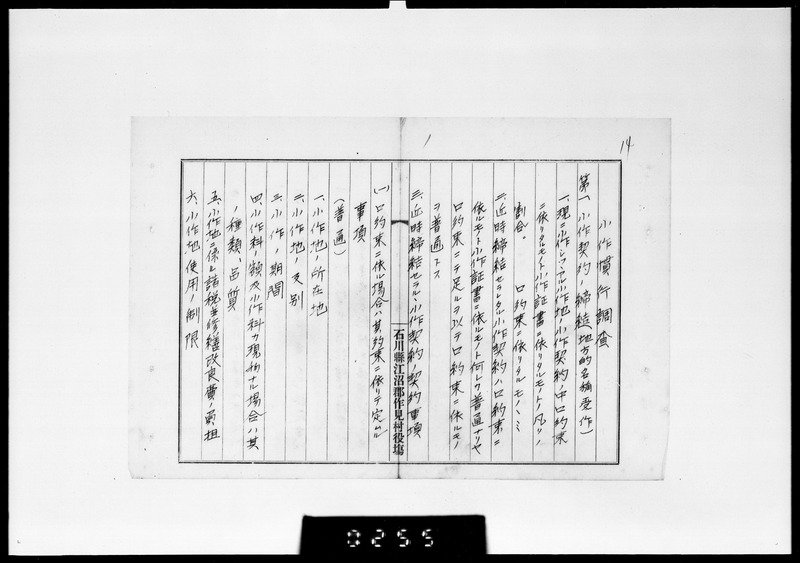 14
小作慣行調査
第一、小作契約ノ締結(地方的名稱受作)
一、現ニ小作シツヽアル小作地ノ小作契約ノ中口約束
ニ依リタルモノト小作証書ニ依リタルモノトノ凡ソノ
割合。 口約束ニ依リタルモノヽミ
二、近時締結セラレタル小作契約ハ口約束ニ
依ルモノト小作証書ニ依ルモノト何レカ普通ナリヤ
口約束ニテ足ルヲ以テ口約束ニ依ルモノ
ヲ普通トス
三、近時締結セラルヽ小作契約ノ契約事項
石川縣江沼郡作見村役塲
(一)口約束ニ依ル場合ハ其約束ニ依リテ定ムル
事項
(普通)
一、小作地ノ所在地
二、小作地ノ反別
三、小作ノ期間
四、小作料ノ額及小作料カ現物ナル場合ハ其
ノ種類、品質
五、小作地ニ係ル諸税並修繕改良費ノ負担
六、小作地使用ノ制限
0255